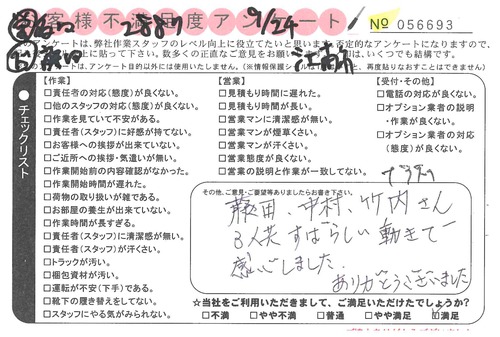 お客様不満度アンケート
2887 9/24
№ 056693
このアンケートは、弊社作業スタッフのレベル向上に役立てたいと思います。否定的なアンケートになりますので、
江南市
チェックリスト
【作業】
□責任者の対応(態度)が良くない。
□他のスタッフの対応(態度)が良くない。
□作業を見ていて不安がある。
□責任者(スタッフ)に好感が持てない。
□お客様への挨拶が出来ていない。
□ご近所への挨拶・気遣いが無い。
□作業開始前の内容確認がなかった。
□作業開始時間が遅れた。
□荷物の取り扱いが雑である。
□お部屋の養生が出来ていない。
□作業時間が長すぎる。
□責任者(スタッフ)に清潔感が無い。
□責任者(スタッフ)が汗くさい。
□トラックが汚い。
□梱包資材が汚い。
□運転が不安(下手)である。
□靴下の履き替えをしてない。
□スタッフにやる気がみられない。
【営業】
□見積もり時間に遅れた。
□見積もり時間が長い。
□営業マンに清潔感が無い。
□営業マンが煙草くさい。
□営業マンが汗くさい。
□営業態度が良くない。
□営業の説明と作業が一致してない。
【受付・その他】
□電話の対応が良くない。
□オプション業者の説明
・作業が良くない。
□オプション業者の対応
(態度)が良くない。
その他、ご意見・ご要望等ありましたらお書き下さい。
藤田、中村、竹内さん
3人共すばらしい動きで
感心しました。
ありがとうございました
☆当社をご利用いただきまして、ご満足いただけたでしょうか?
□不満 □やや不満 □普通 □やや満足 ☑満足